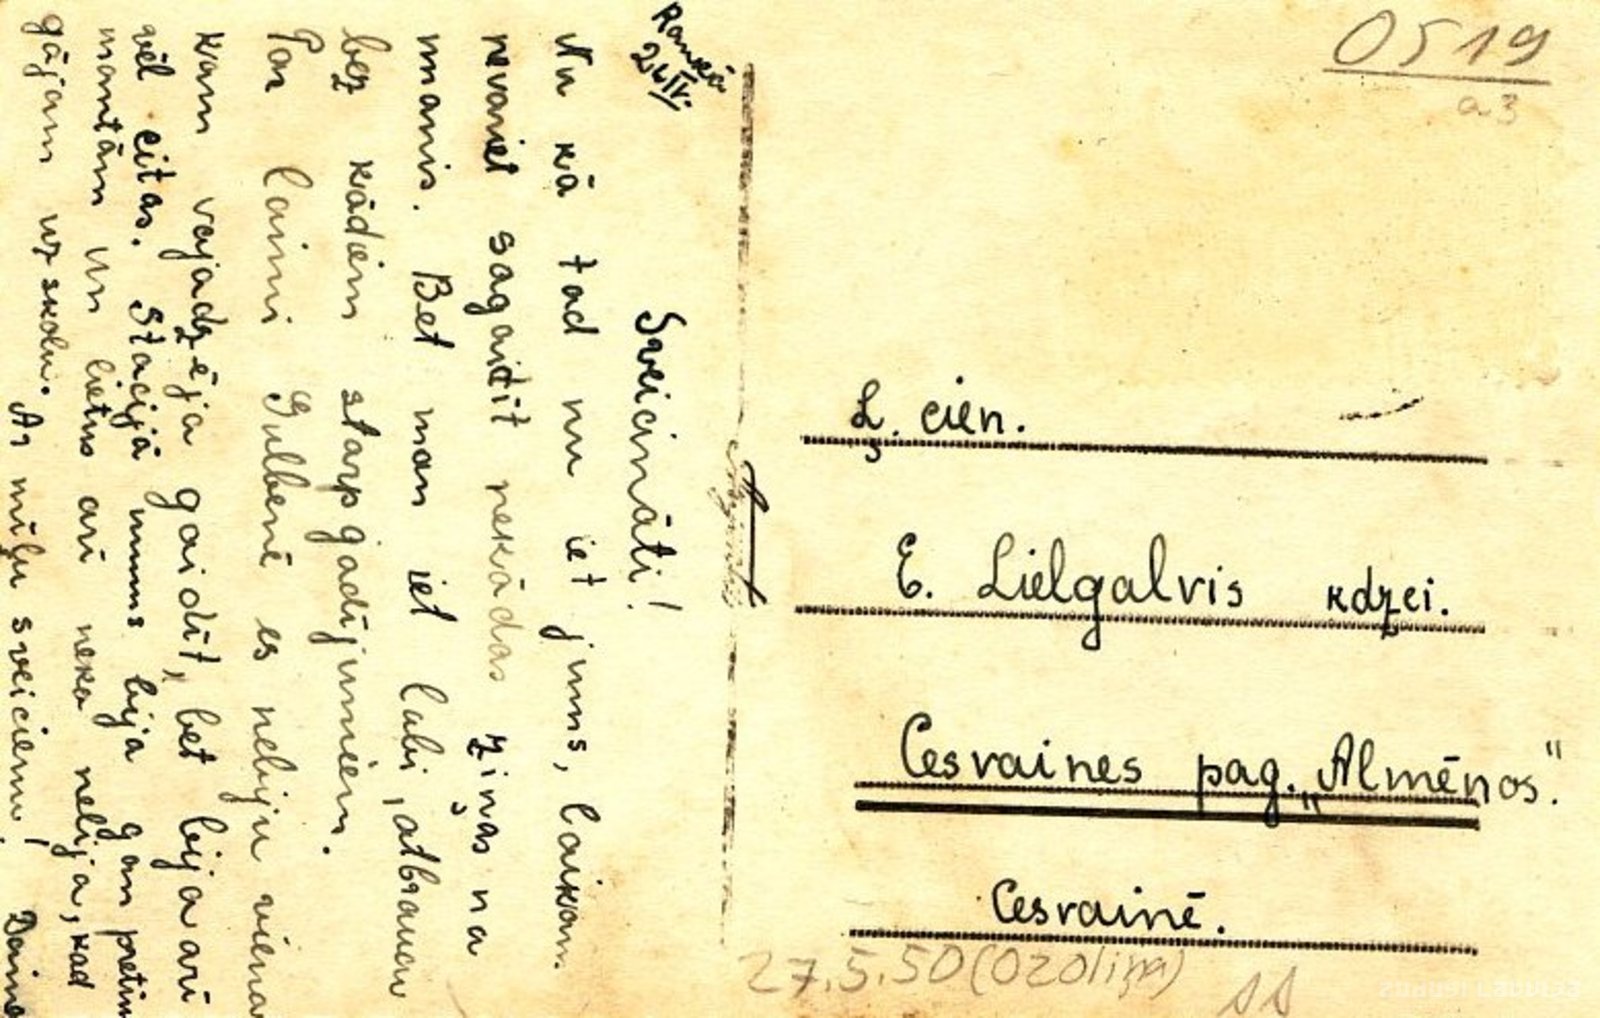 Rankā
24IV.
Sveicināti!
Nu kā tad nu iet jums, laikam
nevariet sagaidīt nekādas ziņas na
manis. Bet man iet labi, atbraucu
bez kādiem starpgadījumiem.
Par laimi Gulbenē es nebiju viena
kam vajadzēja gaidīt, bet bija arī
vēl citas. Stacijā mums bija gan pretim
mantām un lietus arī neka nebija, kad
gājām uz skolu. Ar mīļu sveicienu!
Daina
0519
a3
Ļ. cien.
E. Lielgalvis kdzei.
Cesvaines pag. „Almēnos."
Cesvainē.
27.5.50 (Ozoliņa)